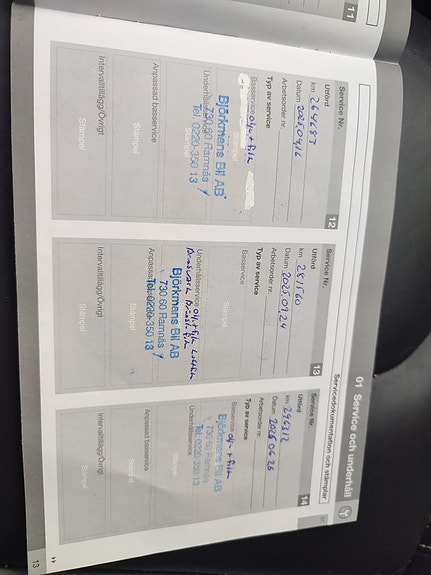 11
01 Service och underhåll
Servicedokumentation och stämplar
Service Nr.
12
Utförd
km 264683
Datum 2025.04.16
Arbetsorder nr.
Typ av service
Basservice olja + filter
Stämpel
Björkmans Bil AB
730 60 Ramnäs
Tel. 0220-350 13
Underhållsservice
Anpassad basservice
Stämpel
Intervalltillägg/Övrigt
Stämpel
Service Nr.
13
Utförd
km 281560
Datum 2025.09.24
Arbetsorder nr.
Typ av service
Basservice
Stämpel
Underhållsservice olja + filter
Björkmans Bil AB
730 60 Ramnäs
Tel. 0220-350 13
Anpassad
Stämpel
Intervalltillägg/Övrigt
Stämpel
Service Nr.
14
Utförd
km 296312
Datum
Arbetsorder nr.
Typ av service
Basservice olja + filter
Björkmans Bil AB
730 60 Ramnäs
Tel. 0220-350 13
Underhållsservice
Stämpel
Anpassad basservice
Stämpel
Intervalltillägg/Övrigt
Stämpel
13